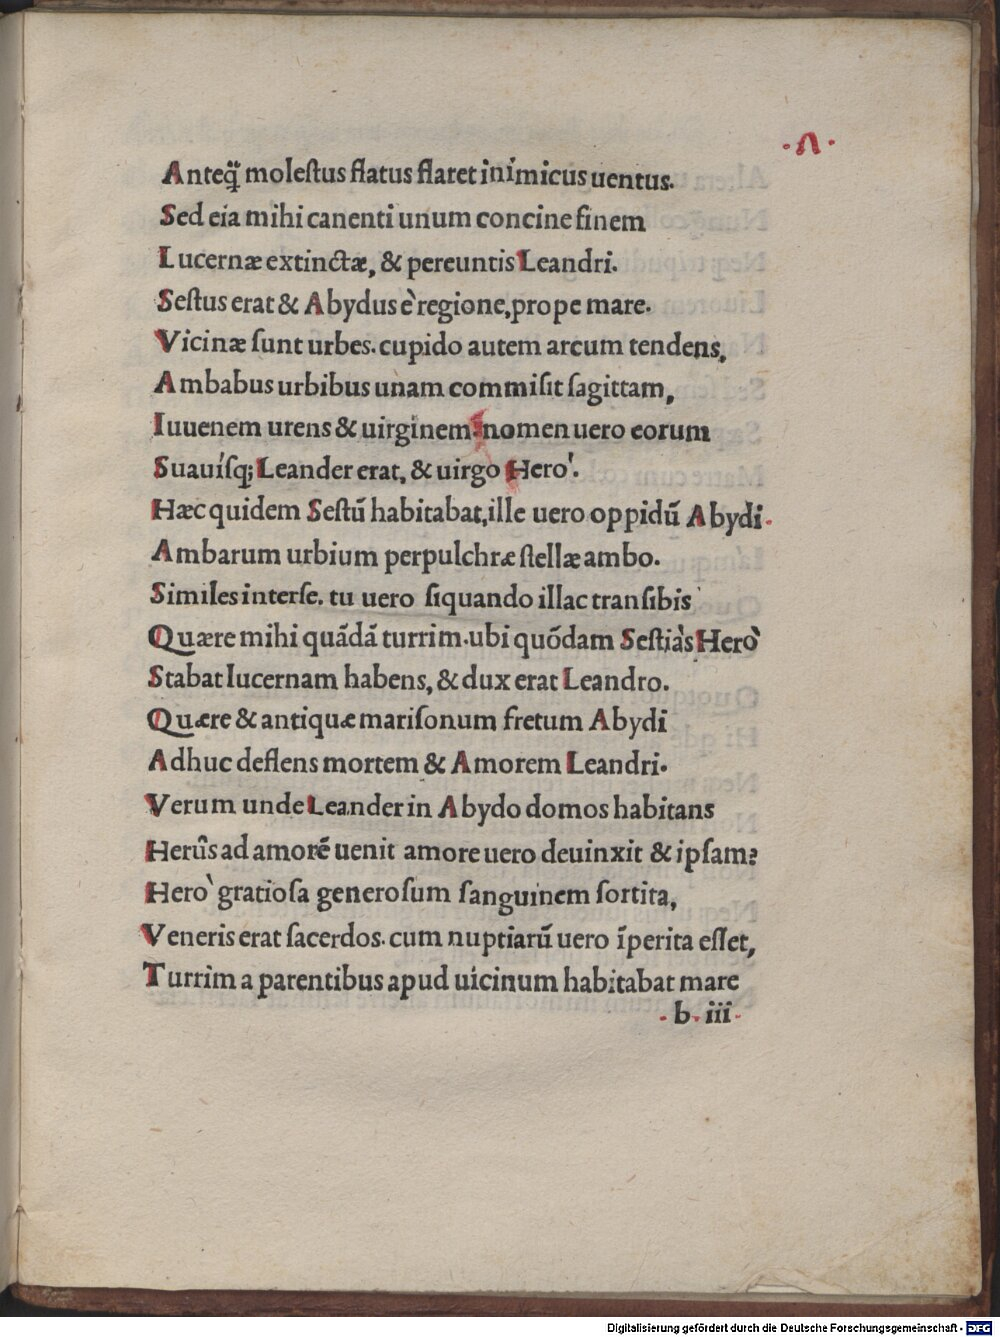 Anteq̃ moleſtus flatus flaret inimicus uentus.
Sed eia mihi canenti unum concine finem
Lucernæ extinctæ, & pereuntis Leandri.
Seſtus erat & Abydus è regione, prope mare.
Vicinæ ſunt urbes. cupido autem arcum tendens,
Ambabus urbibus unam commiſit ſagittam,
Iuuenem urens & uirginem: nomen uero eorum
Suauíſq; Leander erat, & uirgo Hero'.
Hæc quidem Seſtū habitabat, ille uero oppidū Abydi.
Ambarum urbium perpulchræ ſtellæ ambo.
Similes inter ſe. tu uero ſiquando illac tranſibis
Quære mihi quādā turrim. ubi quōdam Seſtiàs Herò
Stabat lucernam habens, & dux erat Leandro.
Quære & antiquæ mariſonum fretum Abydi
Adhuc deflens mortem & Amorem Leandri.
Verum unde Leander in Abydo domos habitans
Herûs ad amorē uenit amore uero deuinxit & ipſam?
Herò gratioſa generoſum ſanguinem ſortita,
Veneris erat ſacerdos. cum nuptiarū uero īperita eſſet,
Turrim a parentibus apud uicinum habitabat mare
. b. iii.
Digitalisierung gefördert durch die Deutsche Forschungsgemeinschaft - DFG